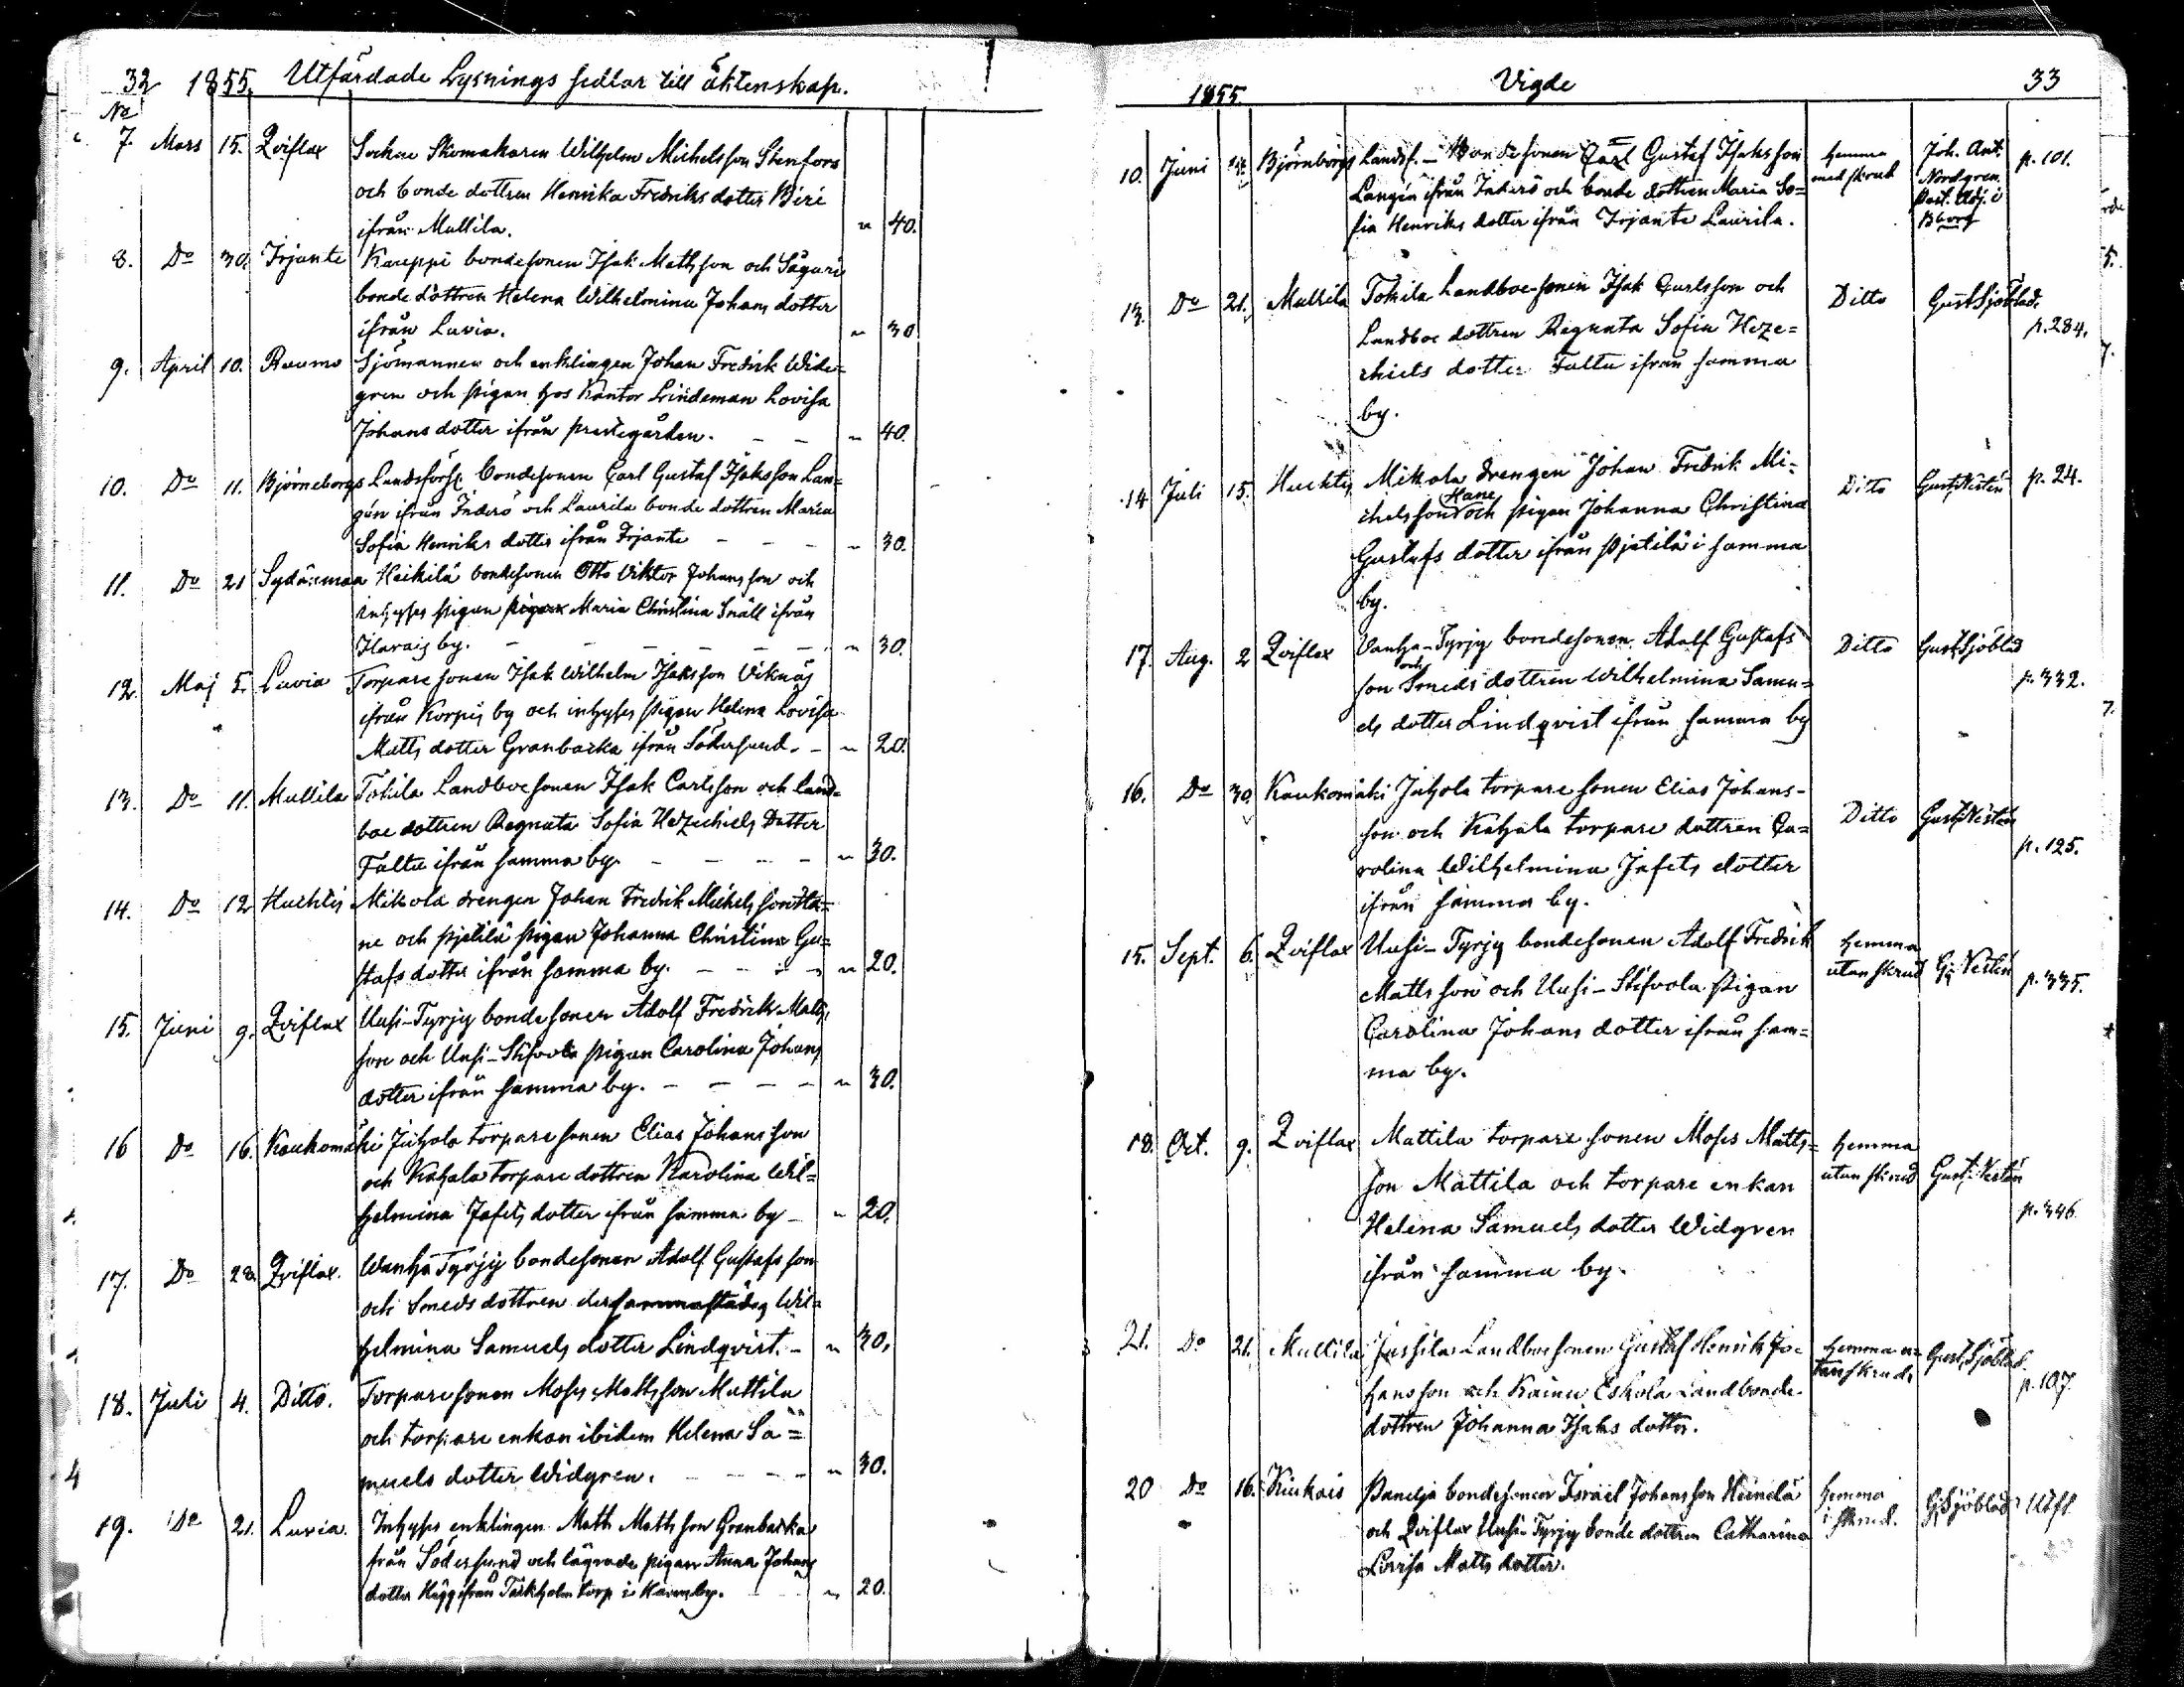 32 1855. Utfärdade Lysnings sedlar till äktenskap.
No
7. Mars 15. Qviflax Sockne Skomakaren Wilhelm Michelsson Stenfors
och bonde dottren Henrika Fredriks dotter Biri
ifrån Mullila. " 40.
8. Do 30. Irjante Kauppi bondesonen Isak Mattsson och Säguri
bonde dottren Helena Wilhelmina Johans dotter
ifrån Luvia. " 30
9. April 10. Raumo Sjömannen och enklingen Johan Fredrik Wide=
gren och pigan hos Kantor Lindeman Lovisa
Johans dotter ifrån prestegården. - - " 40.
10. Do 11. Björneborgs Landsförs. bondesonen Carl Gustaf Isaksson Lan=
gén ifrån Inderö och Laurila bonde dottren Maria
Sofia Henriks dotter ifrån Irjante - - - " 30.
11. Do 21 Sydänmaa Heikilä bondesonen Otto Viktor Johansson och
inhyses pigan Maria Christina Snäll ifrån
by. - - - - - - " 30.
12. Maj 5. Luvia Torpare sonen Isak Wilhelm Isaksson Viknäs
ifrån Korpis by och inhyses pigan Helena Lovisa
Matts dotter Granbacka ifrån Södersund. - " 20.
13. Do 11. Mullila Tokila Landboe sonen Isak Carlsson och land=
boe dottren Regnata Sofia Hezechiels Dotter
Faltu ifrån samma by. - - - - " 30.
14. Do 12 Huchtis Mikola drengen Johan Fredrik Michelsson Ha=
ne och Pjetilä pigan Johanna Christina Gu=
stafs dotter ifrån samma by. - - - - " 20.
15. Juni 9. Qviflax Uusi-Tyrjy bondesonen Adolf Fredrik Matts
son och Uusi-Stifvola pigan Carolina Johans
dotter ifrån samma by. - - - - " 30.
16 Do 16. Kaukomäki Juhola torpare sonen Elias Johansson
och Kahala torpare dottren Karolina Wil=
helmina Jafets dotter ifrån samma by - " 20.
17. Do 28. Qviflax. Wanha Tyrjy bondesonen Adolf Gustafsson
och Smeds dottren dersammastädes Wil=
helmina Samuels dotter Lindqvist. - " 30.
18. Juli 4. Ditto. Torpare sonen Moses Mattsson Mattila
och torpare enkan ibidem Helena Sa=
muels dotter Widgren. - - - - " 30.
19. Do 21. Luvia. Inhyses enklingen Matts Mattsson Granbacka
från Södersund och lägrade pigan Anna Johans
dotter Hägg ifrån Täckholm torp i by. - - " 20.
1855. Vigde 33
10. Juni Björnborgs Landsf. - Bondesonen Carl Gustaf Isaksson hemma Joh. Ant. p. 101.
Langén ifrån Inderö och bonde dottren Maria So= med skrud Nordgren
fia Henriks dotter ifrån Irjante Laurila. Past. Adj. i
Bborg
13. Do 21. Mullila Tokila Landboe-sonen Isak Carlsson och Ditto Gust Sjöblad.
Landboe dottren Regnata Sofia Heze= p. 284.
chiels dotter Faltu ifrån samma
by.
14 Juli 15. Huchtis Mikola drengen Johan Fredrik Mi= Ditto Gust Vestén p. 24.
Hane
chelsson och pigan Johanna Christina
Gustafs dotter ifrån Pjetilä i samma
by.
17. Aug. 2 Qviflax Vanha-Tyrjy bondesonen Adolf Gustafs Ditto Gust Sjöblad
och
son Smeds dottren Wilhelmina Samu= p. 332.
els dotter Lindqvist ifrån samma by
16. Do 30. Kaukomäki Juhola torpare sonen Elias Johans-
son och Kahala torpare dottren Ca= Ditto Gust Vestén
rolina Wilhelmina Jafets dotter p. 125.
ifrån samma by.
15. Sept. 6. Qviflax Uusi-Tyrjy bondesonen Adolf Fredrik hemma
Mattsson och Uusi-Stifvola pigan utan skrud G. Vestén p. 335.
Carolina Johans dotter ifrån sam=
ma by.
18. Oct. 9. Qviflax Mattila torpare sonen Moses Matts= hemma
son Mattila och torpare enkan utan skrud Gust. Vestén
Helena Samuels dotter Widgren p. 346
ifrån samma by.
21. Do 21. Mullila Jussila Landboe sonen Gustaf Henrik Jo= hemma u= Gust. Sjöblad.
hansson och Kainu Eskola Landbonde= tan skrud. p. 107
dottren Johanna Isaks dotter.
20 Do 16. Kiukais Panelja bondesonen Israel Johansson Heinilä hemma G Sjöblad Utfl
och Qviflax Uusi-Tyrjy bonde dottren Catharina i skrud.
Lovisa Matts dotter.